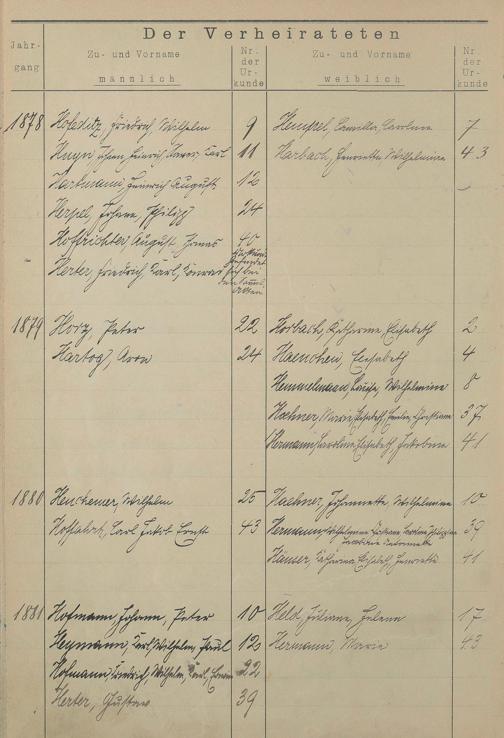 Der Verheirateten
Jahr-
gang
Zu- und Vorname
männlich
Nr.
der
Ur-
kunde
Zu- und Vorname
weiblich
Nr.
der
Ur-
kunde
1878 Friedrich, Wilhelm 9 Hempel, Camilla, Caroline 7
Heinrich, Carl 11 Harbach, Henriette, Wilhelmine 43
Hartmann, Heinrich August 12
Herpel, Johann, Philipp 24
Hoffrichter, August, 40
Herter, Friedrich, Carl, Conrad
1879 Horz, Peter 22 Horbach, Katharina, Elisabeth 2
Hartog, Aron 24 Haenchen, Elisabeth 4
Hemmelmann, Louise, Wilhelmine 8
Haehner, Marie, Elisabeth, Christiane 37
Hermann, Caroline, Elisabeth, Jakobine 41
1880 Wilhelm 25 Haehner, Johannette, Wilhelmine 10
Carl Jakob Ernst 43 Hermann, Wilhelmine 39
Häuser, Katharina, Elisabeth, Henriette 41
1881 Hofmann, Johann, Peter 10 Held, Juliane, Helene 17
Heymann, Karl, Wilhelm, Paul 12 Hermann, Maria 43
Hofmann, Friedrich, Wilhelm, Carl, 22
Herter, Gustav 39